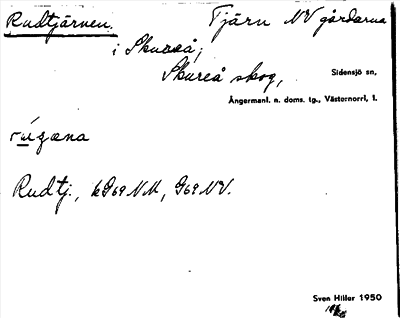 Rudtjärnen. Tjärn NV gårdarna
i Skureå,
Skureå skog, Sidensjö sn,
Ångermanl. n. doms. tg., Västernorrl. l.
Rudtj., G69 NV.
Sven Hiller 1950